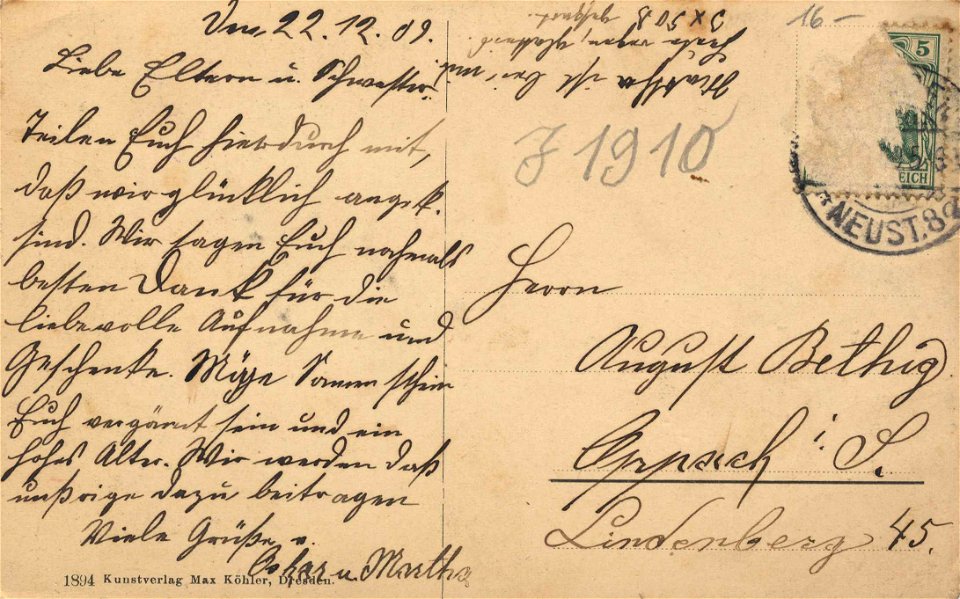 Den 22.12.09.
Liebe Eltern u. Schwester.
Teilen Euch hierdurch mit,
daß wir glücklich angek.
sind. Wir sagen Euch nochmals
besten Dank für die
liebevolle Aufnahme und
Geschenke. Möge Sonnenschein
Euch vergönnt sein und ein
hohes Alter. Wir werden das
unsrige dazu beitragen
Viele Grüße v.
Oskar u. Martha
1894 Kunstverlag Max Köhler, Dresden.
3 x 50 8
16 –
J 1910
5
EICH
NEUST. 8
Herrn
August Bethig
Oppach i. S.
Lindenberg 45.